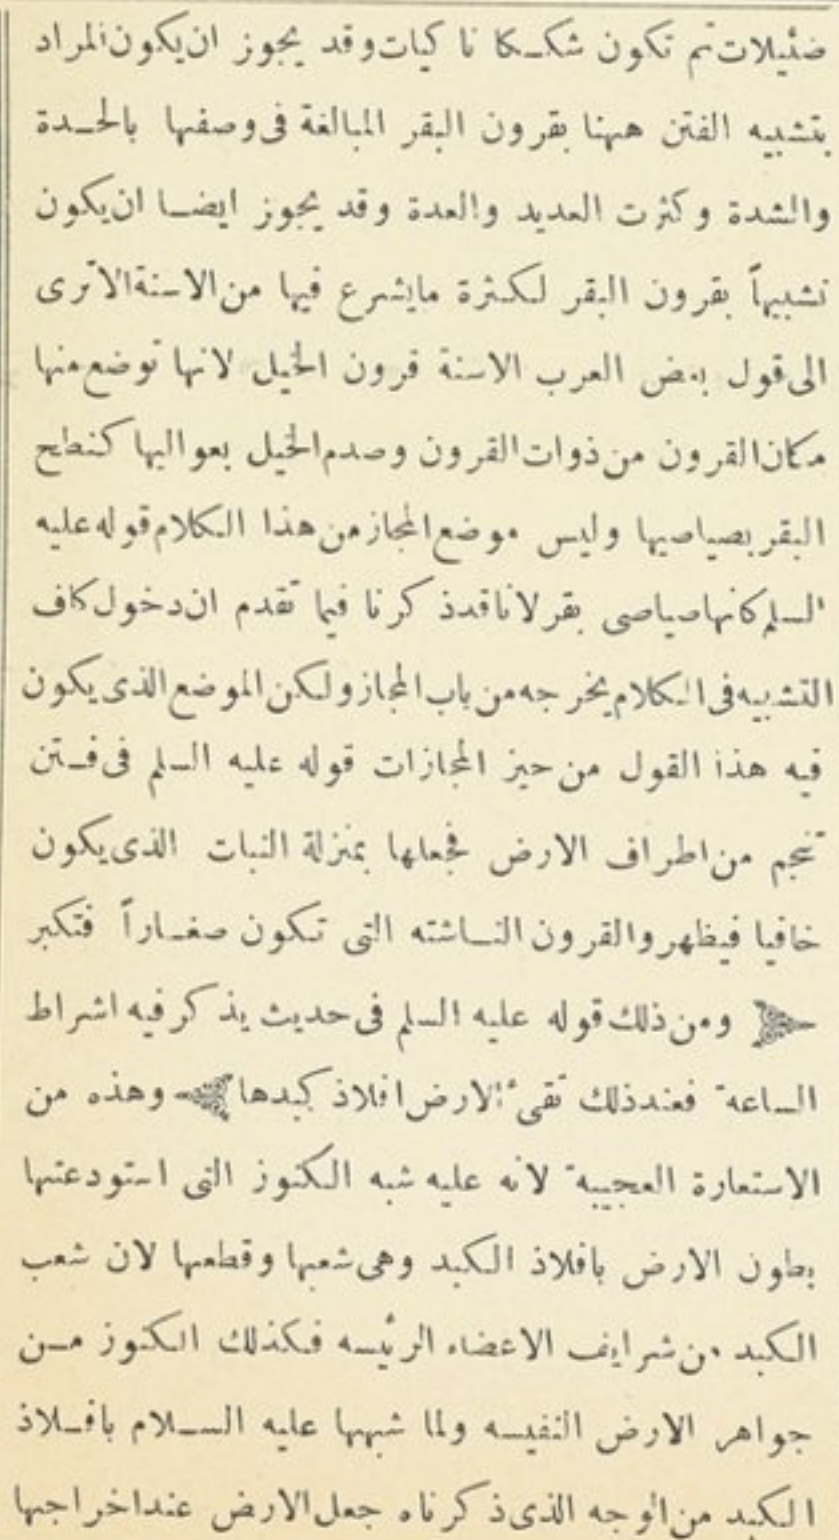 ضئيلات ثم تكون شكـكا نا كيات وقد يجوز ان يكون المراد
بتشبيه الفتن ههنا بقرون البقر المبالغة فى وصفها بالحـدة
والشدة وكثرت العديد والعدة وقد يجوز ايضـا ان يكون
تشبيهاً بقرون البقر لكـثرة مايشرع فيها من الاسنة الا ترى
الى قول بعض العرب الاسنة قرون الخيل لانها توضع منها
مكان القرون من ذوات القرون وصدم الخيل بعواليها كنطح
البقر بصياصيها وليس موضع المجاز من هذا الكلام قوله عليه
السلم كانها صياصى بقر لانا قد ذكرنا فيما تقدم ان دخول كاف
التشبيه فى الكلام يخرجه من باب المجاز ولكن الموضع الذى يكون
فيه هذا القول من حيز المجازات قوله عليه السلم فى فـتن
تنجم من اطراف الارض فجعلها بمنزلة النبات الذى يكون
خافيا فيظهر والقرون النـاشئه التى تكون صغـاراً فتكبر
ومن ذلك قوله عليه السلم فى حديث يذكر فيه اشراط
الساعة فعند ذلك تقىء الارض افلاذ كبدها وهذه من
الاستعارة العجيبة لانه عليه شبه الكنوز التى استودعتها
بطون الارض بافلاذ الكبد وهى شعبها وقطعها لان شعب
الكبد من شرايف الاعضاء الرئيسه فكذلك الكنوز مـن
جواهر الارض النفيسه ولما شبهها عليه السـلام بافـلاذ
الكبد من الوجه الذى ذكرناه جعل الارض عند اخراجها